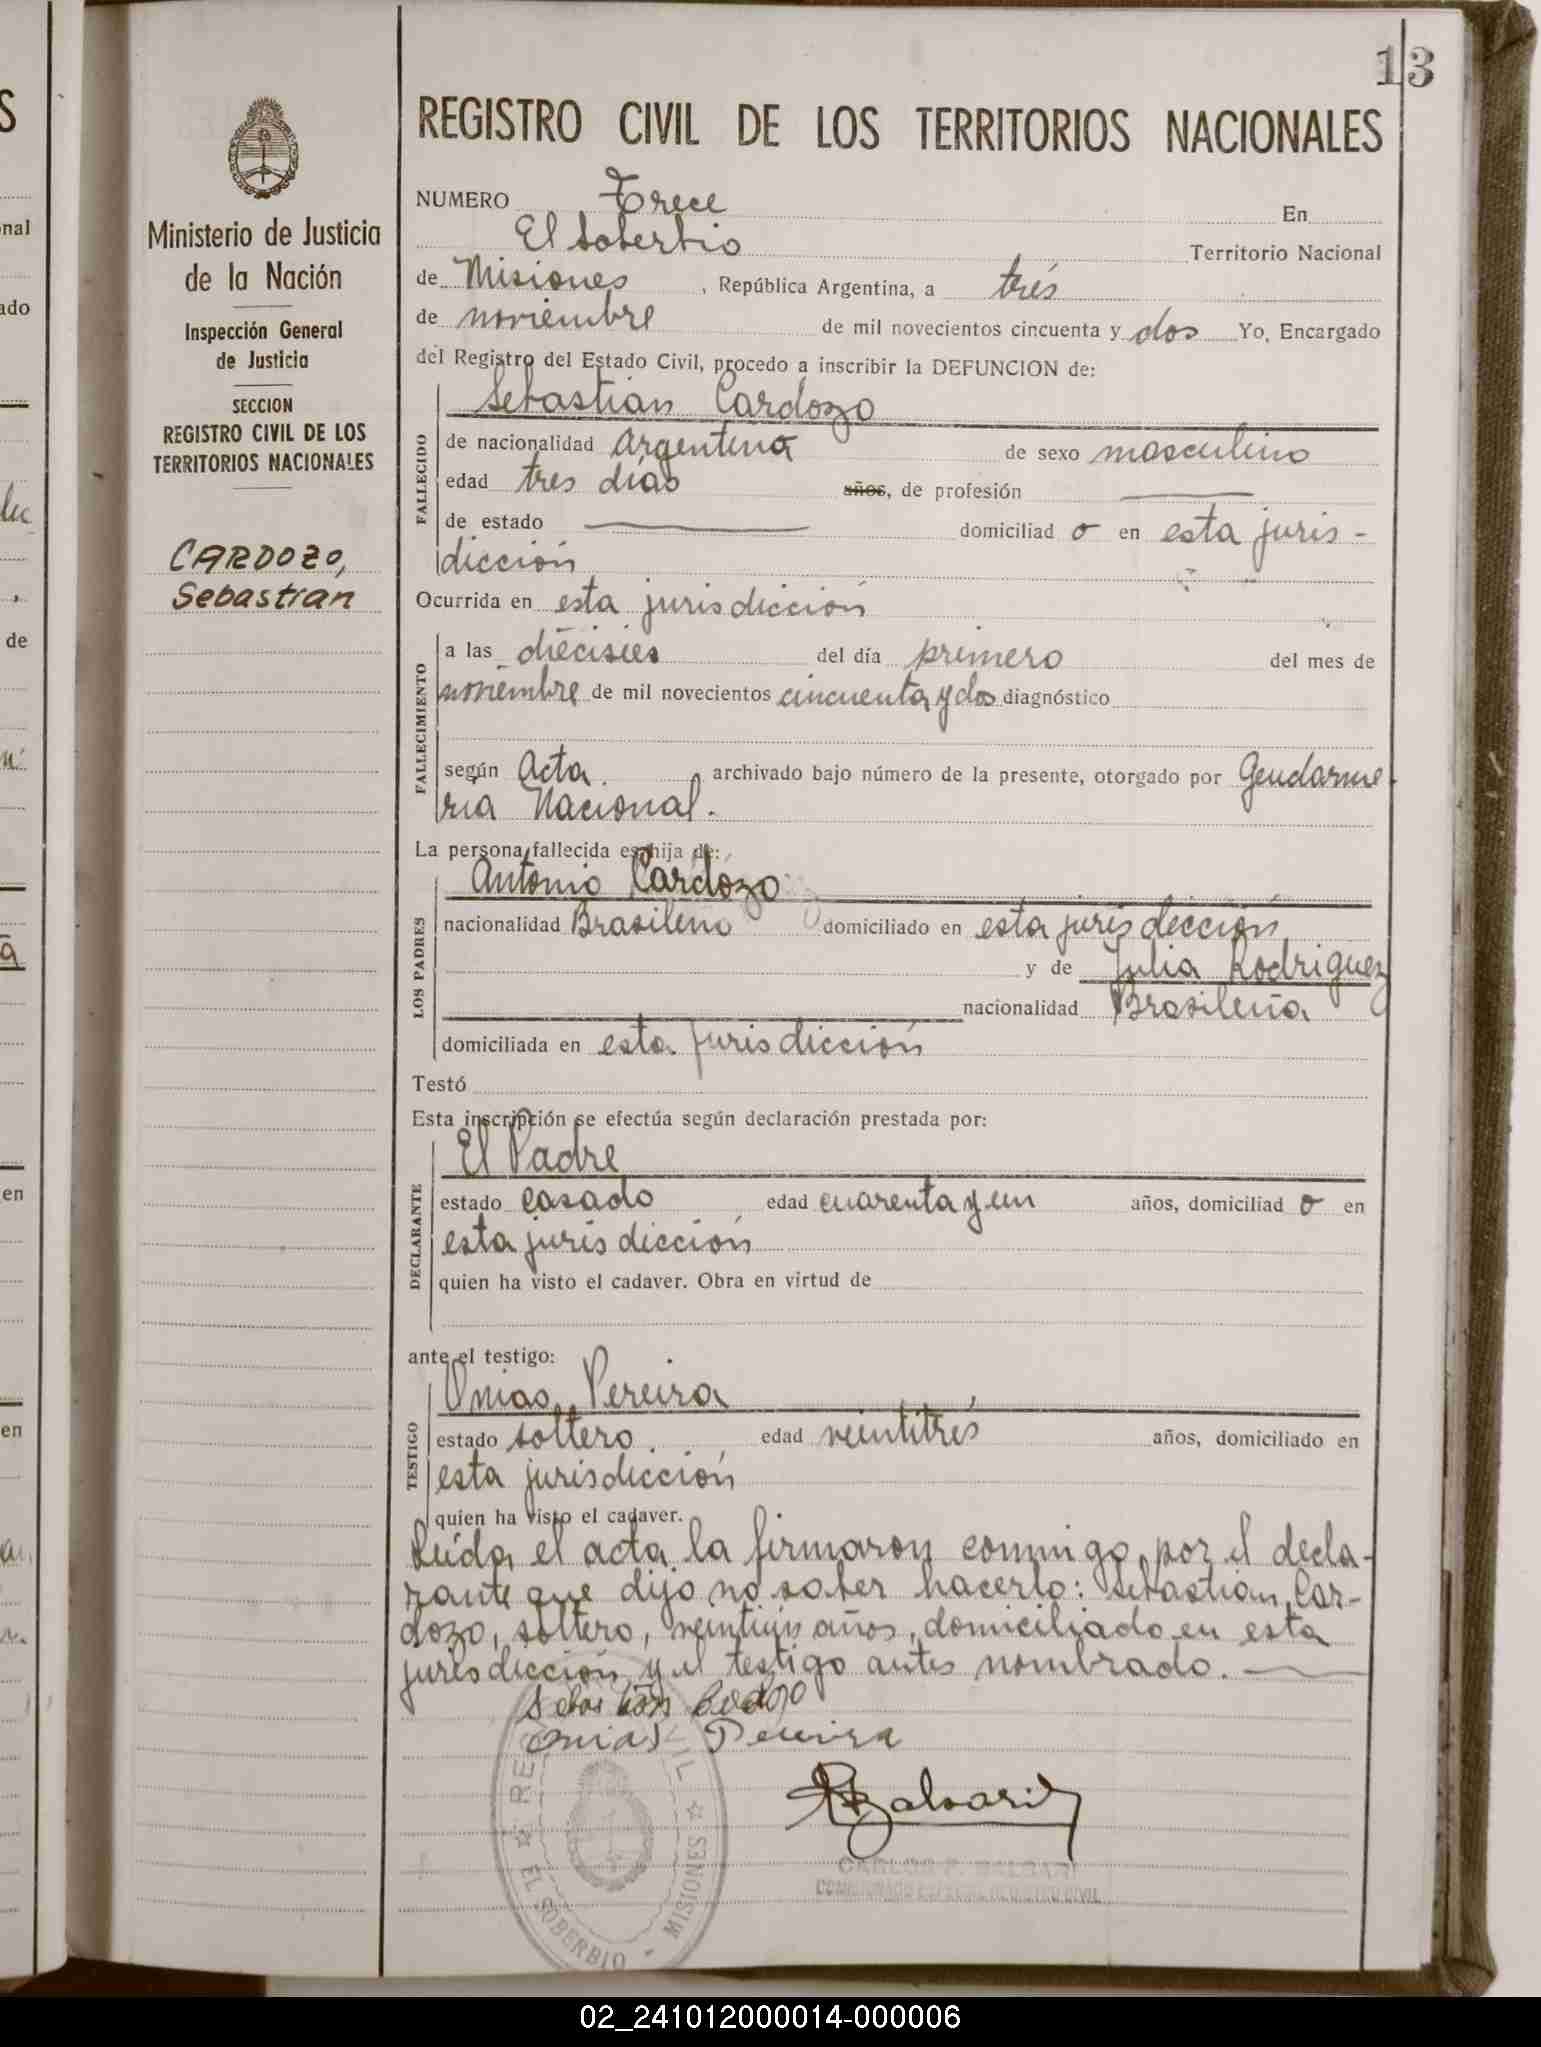 13
REGISTRO CIVIL DE LOS TERRITORIOS NACIONALES
Ministerio de Justicia
de la Nación
Inspección General
de Justicia
SECCION
REGISTRO CIVIL DE LOS
TERRITORIOS NACIONALES
CARDOZO,
Sebastian
NUMERO Trece En
El Soberbio Territorio Nacional
de Misiones, República Argentina, a trés
de noviembre de mil novecientos cincuenta y dos Yo, Encargado
del Registro del Estado Civil, procedo a inscribir la DEFUNCION de:
FALLECIDO
Sebastián Cardozo
de nacionalidad argentina de sexo masculino
edad tres días años, de profesión
de estado domiciliad o en esta juris-
dicción
Ocurrida en esta jurisdicción
FALLECIMIENTO
a las diecisies del día primero del mes de
noviembre de mil novecientos cincuenta y dos diagnóstico
según Acta. archivado bajo número de la presente, otorgado por Gendarme-
ria Nacional.
La persona fallecida es hija de:
LOS PADRES
Antonio Cardózo
nacionalidad Brasileño domiciliado en esta jurisdicción
y de Julia Rodriguez
nacionalidad Brasileña
domiciliada en esta jurisdicción
Testó
Esta inscripción se efectúa según declaración prestada por:
DECLARANTE
El Padre
estado casado edad cuarenta y un años, domiciliad o en
esta jurisdicción
quien ha visto el cadaver. Obra en virtud de
ante el testigo:
TESTIGO
Onias Pereira
estado soltero. edad veintitrés años, domiciliado en
esta jurisdicción
quien ha visto el cadaver.
Leida el acta la firmaron conmigo, por el decla-
rante que dijo no saber hacerlo: Sebastián Car-
dozo, soltero, veintiún años, domiciliado en esta
jurisdicción y el testigo antes nombrado.
Sebastián Cardozo
Onias Pereira
CARLOS P. BALGARI
COMISIONADO ESPECIAL REGISTRO CIVIL
EL SOBERBIO - MISIONES
02_241012000014-000006